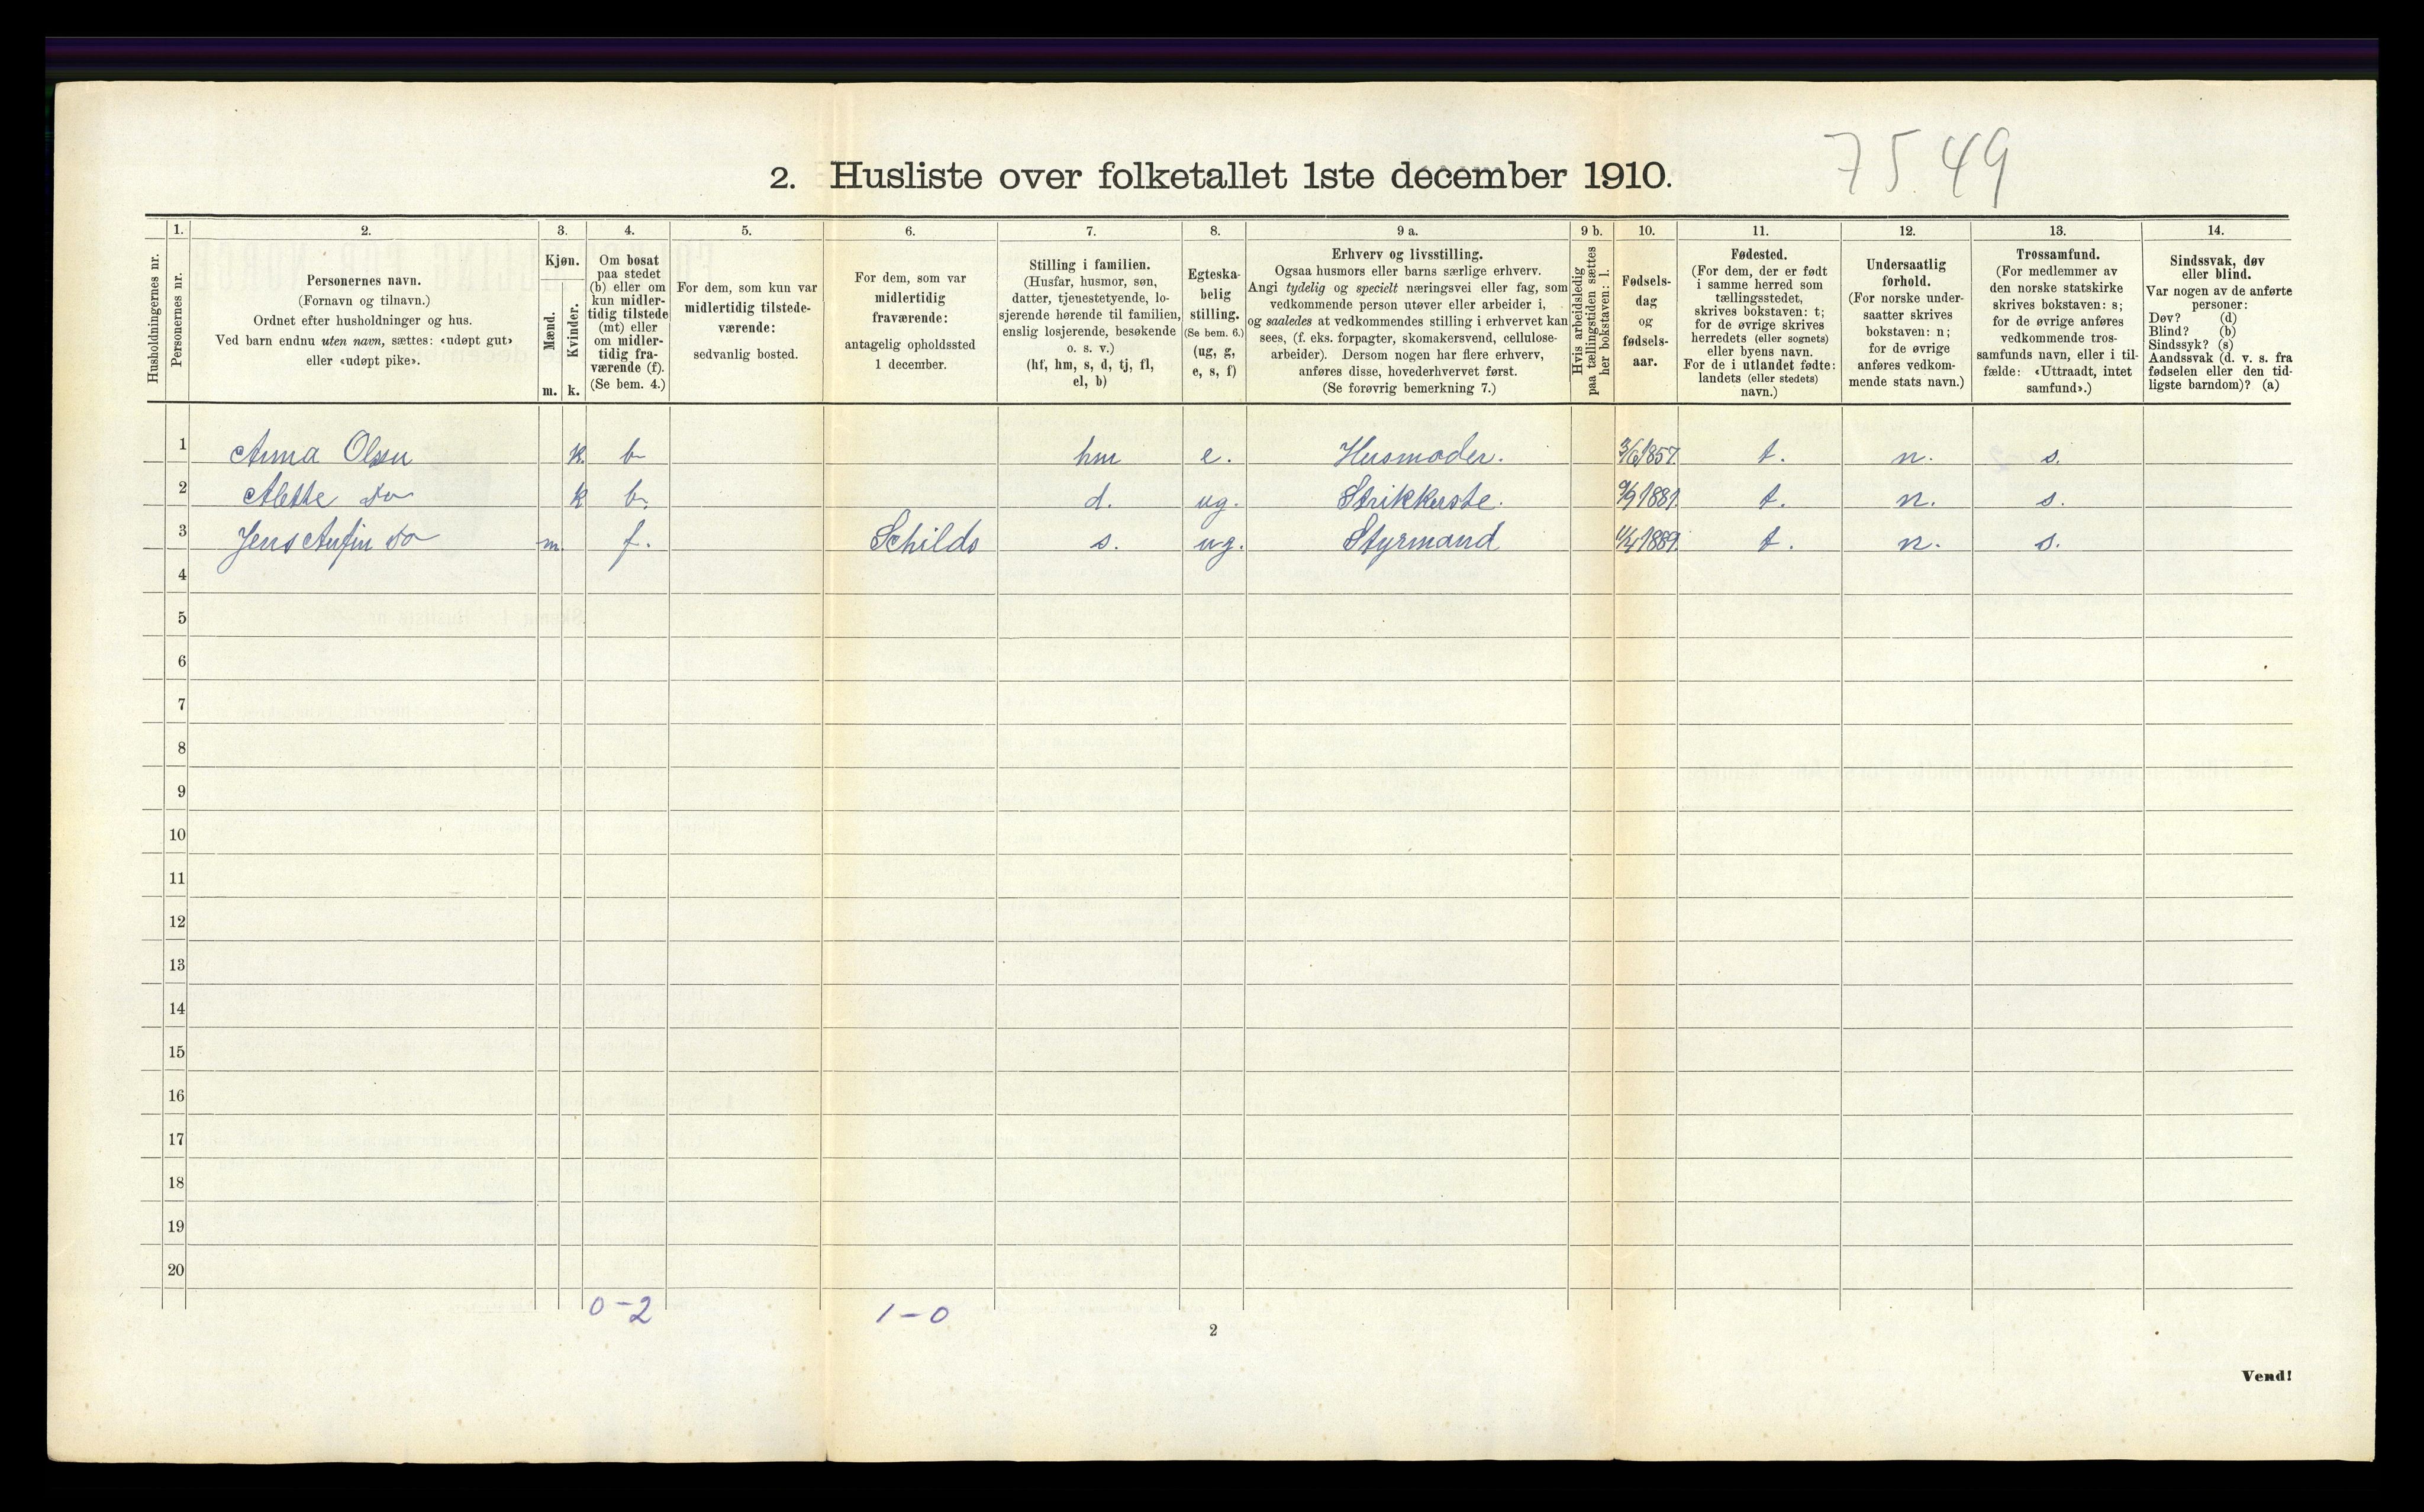 75.49
2. Husliste over folketallet 1ste december 1910.
1. 2. 3. 4. 5. 6. 7. 8. 9 a. 9 b. 10. 11. 12. 13. 14.
Husholdningernes nr.
Personernes nr.
Personernes navn.
(Fornavn og tilnavn.)
Ordnet efter husholdninger og hus.
Ved barn endnu uten navn, sættes: «udøpt gut»
eller «udøpt pike».
Kjøn.
Mænd.
Kvinder.
m. k.
Om bosat
paa stedet
(b) eller om
kun midler-
tidig tilstede
(mt) eller
om midler-
tidig fra-
værende (f).
(Se bem. 4.)
For dem, som kun var
midlertidig tilstede-
værende:
sedvanlig bosted.
For dem, som var
midlertidig
fraværende:
antagelig opholdssted
1 december.
Stilling i familien.
(Husfar, husmor, søn,
datter, tjenestetyende, lo-
sjerende hørende til familien,
enslig losjerende, besøkende
o. s. v.)
(hf, hm, s, d, tj, fl,
el, b)
Egteska-
belig
stilling.
(Se bem. 6.)
(ug, g,
e, s, f)
Erhverv og livsstilling.
Ogsaa husmors eller barns særlige erhverv.
Angi tydelig og specielt næringsvei eller fag, som
vedkommende person utøver eller arbeider i,
og saaledes at vedkommendes stilling i erhvervet kan
sees, (f. eks. forpagter, skomakersvend, cellulose-
arbeider). Dersom nogen har flere erhverv,
anføres disse, hovederhvervet først.
(Se forøvrig bemerkning 7.)
Hvis arbeidsledig
paa tællingstiden sættes
her bokstaven: l.
Fødsels-
dag
og
fødsels-
aar.
Fødested.
(For dem, der er født
i samme herred som
tællingsstedet,
skrives bokstaven: t;
for de øvrige skrives
herredets (eller sognets)
eller byens navn.
For de i utlandet fødte:
landets (eller stedets)
navn.)
Undersaatlig
forhold.
(For norske under-
saatter skrives
bokstaven: n;
for de øvrige
anføres vedkom-
mende stats navn.)
Trossamfund.
(For medlemmer av
den norske statskirke
skrives bokstaven: s;
for de øvrige anføres
vedkommende tros-
samfunds navn, eller i til-
fælde: «Uttraadt, intet
samfund».)
Sindssvak, døv
eller blind.
Var nogen av de anførte
personer:
Døv? (d)
Blind? (b)
Sindssyk? (s)
Aandssvak (d. v. s. fra
fødselen eller den tid-
ligste barndom)? (a)
1 Anna Olsen k. b hm e. Husmoder. 3/6 1857. t. n. s.
2 Alette do k b. d. ug. Strikkerste. 9/9 1881. t. n. s.
3 Jens Anfin do m. f. Schilds s. ug. Styrmand 1889. t. n. s.
4
5
6
7
8
9
10
11
12
13
14
15
16
17
18
19
20
0-2 1-0
2
Vend!